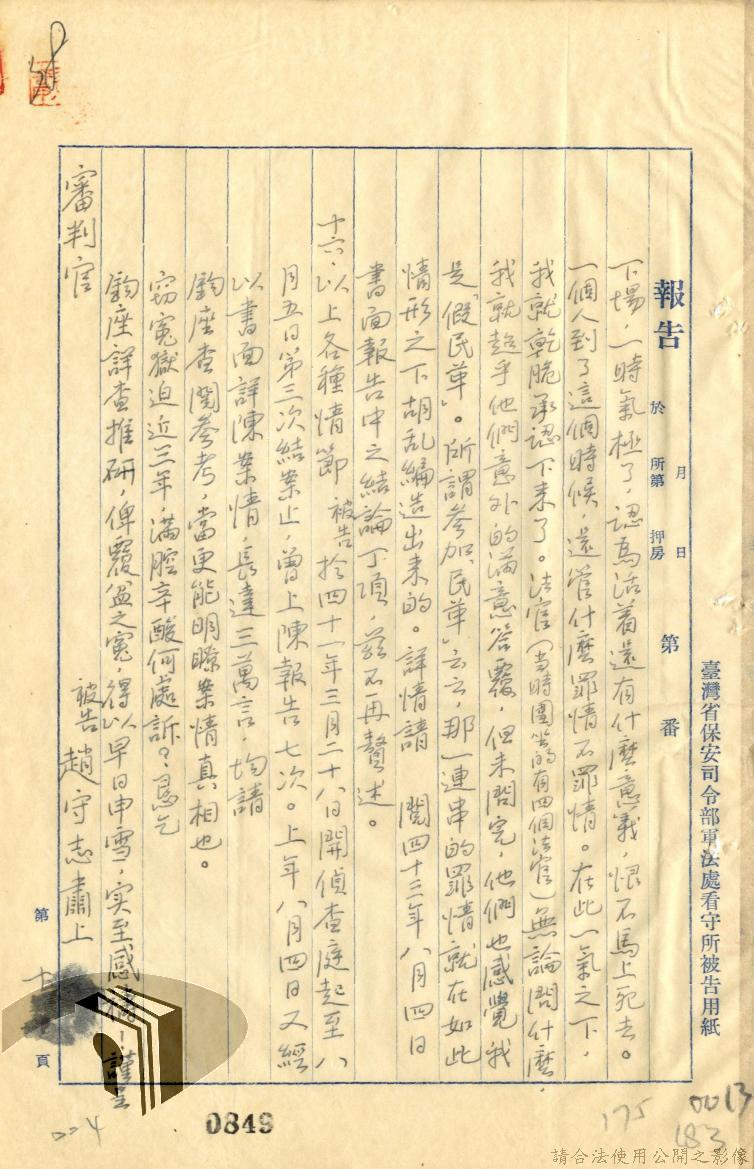 臺灣省保安司令部軍法處看守所被告用紙
報告
於 所第 押房
月 日
第 番
下場，一時氣極了，認為活着還有什麼意義，恨不馬上死去。
一個人到了這個時候，還管什麼罪情不罪情。在此一氣之下，
我就乾脆承認下來了。法官（當時圍坐的有四個法官）無論問什麼，
我就超乎他們意外的滿意答覆，但未問完，他們也感覺我
是「假民革」。所謂參加「民革」云云，那一連串的罪情就在如此
情形之下胡乱編造出來的。詳情請 閱四十三年八月四日
書面報告中之結論丁項，茲不再贅述。
十六、以上各種情節 被告於四十一年三月二十八日開偵查庭起至八
月五日第三次結案止，曾上陳報告七次。上年八月四日又經
以書面詳陳案情，長達三萬言，均請
鈞座查閱參考，當更能明瞭案情真相也。
窃冤獄迫近三年，滿腔辛酸何處訴？懇乞
鈞座詳查推研，俾覆盆之冤，得以早日申雪，实至感禱！謹呈
審判官
被告 趙守志 肅上
第 十 頁
004
0849
175
0013
183
請合法使用公開之影像